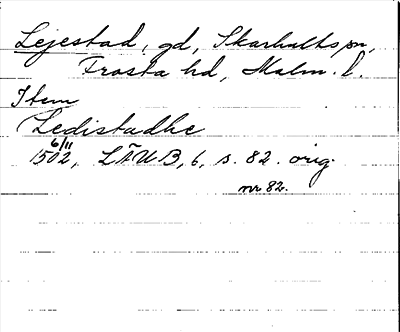 Lejestad, gd, Skarhults sn,
Frosta hd, Malm. l.
Item
Ledistadhe
6/11
1502, LÄUB, 6, s. 82. orig.
nr 82.